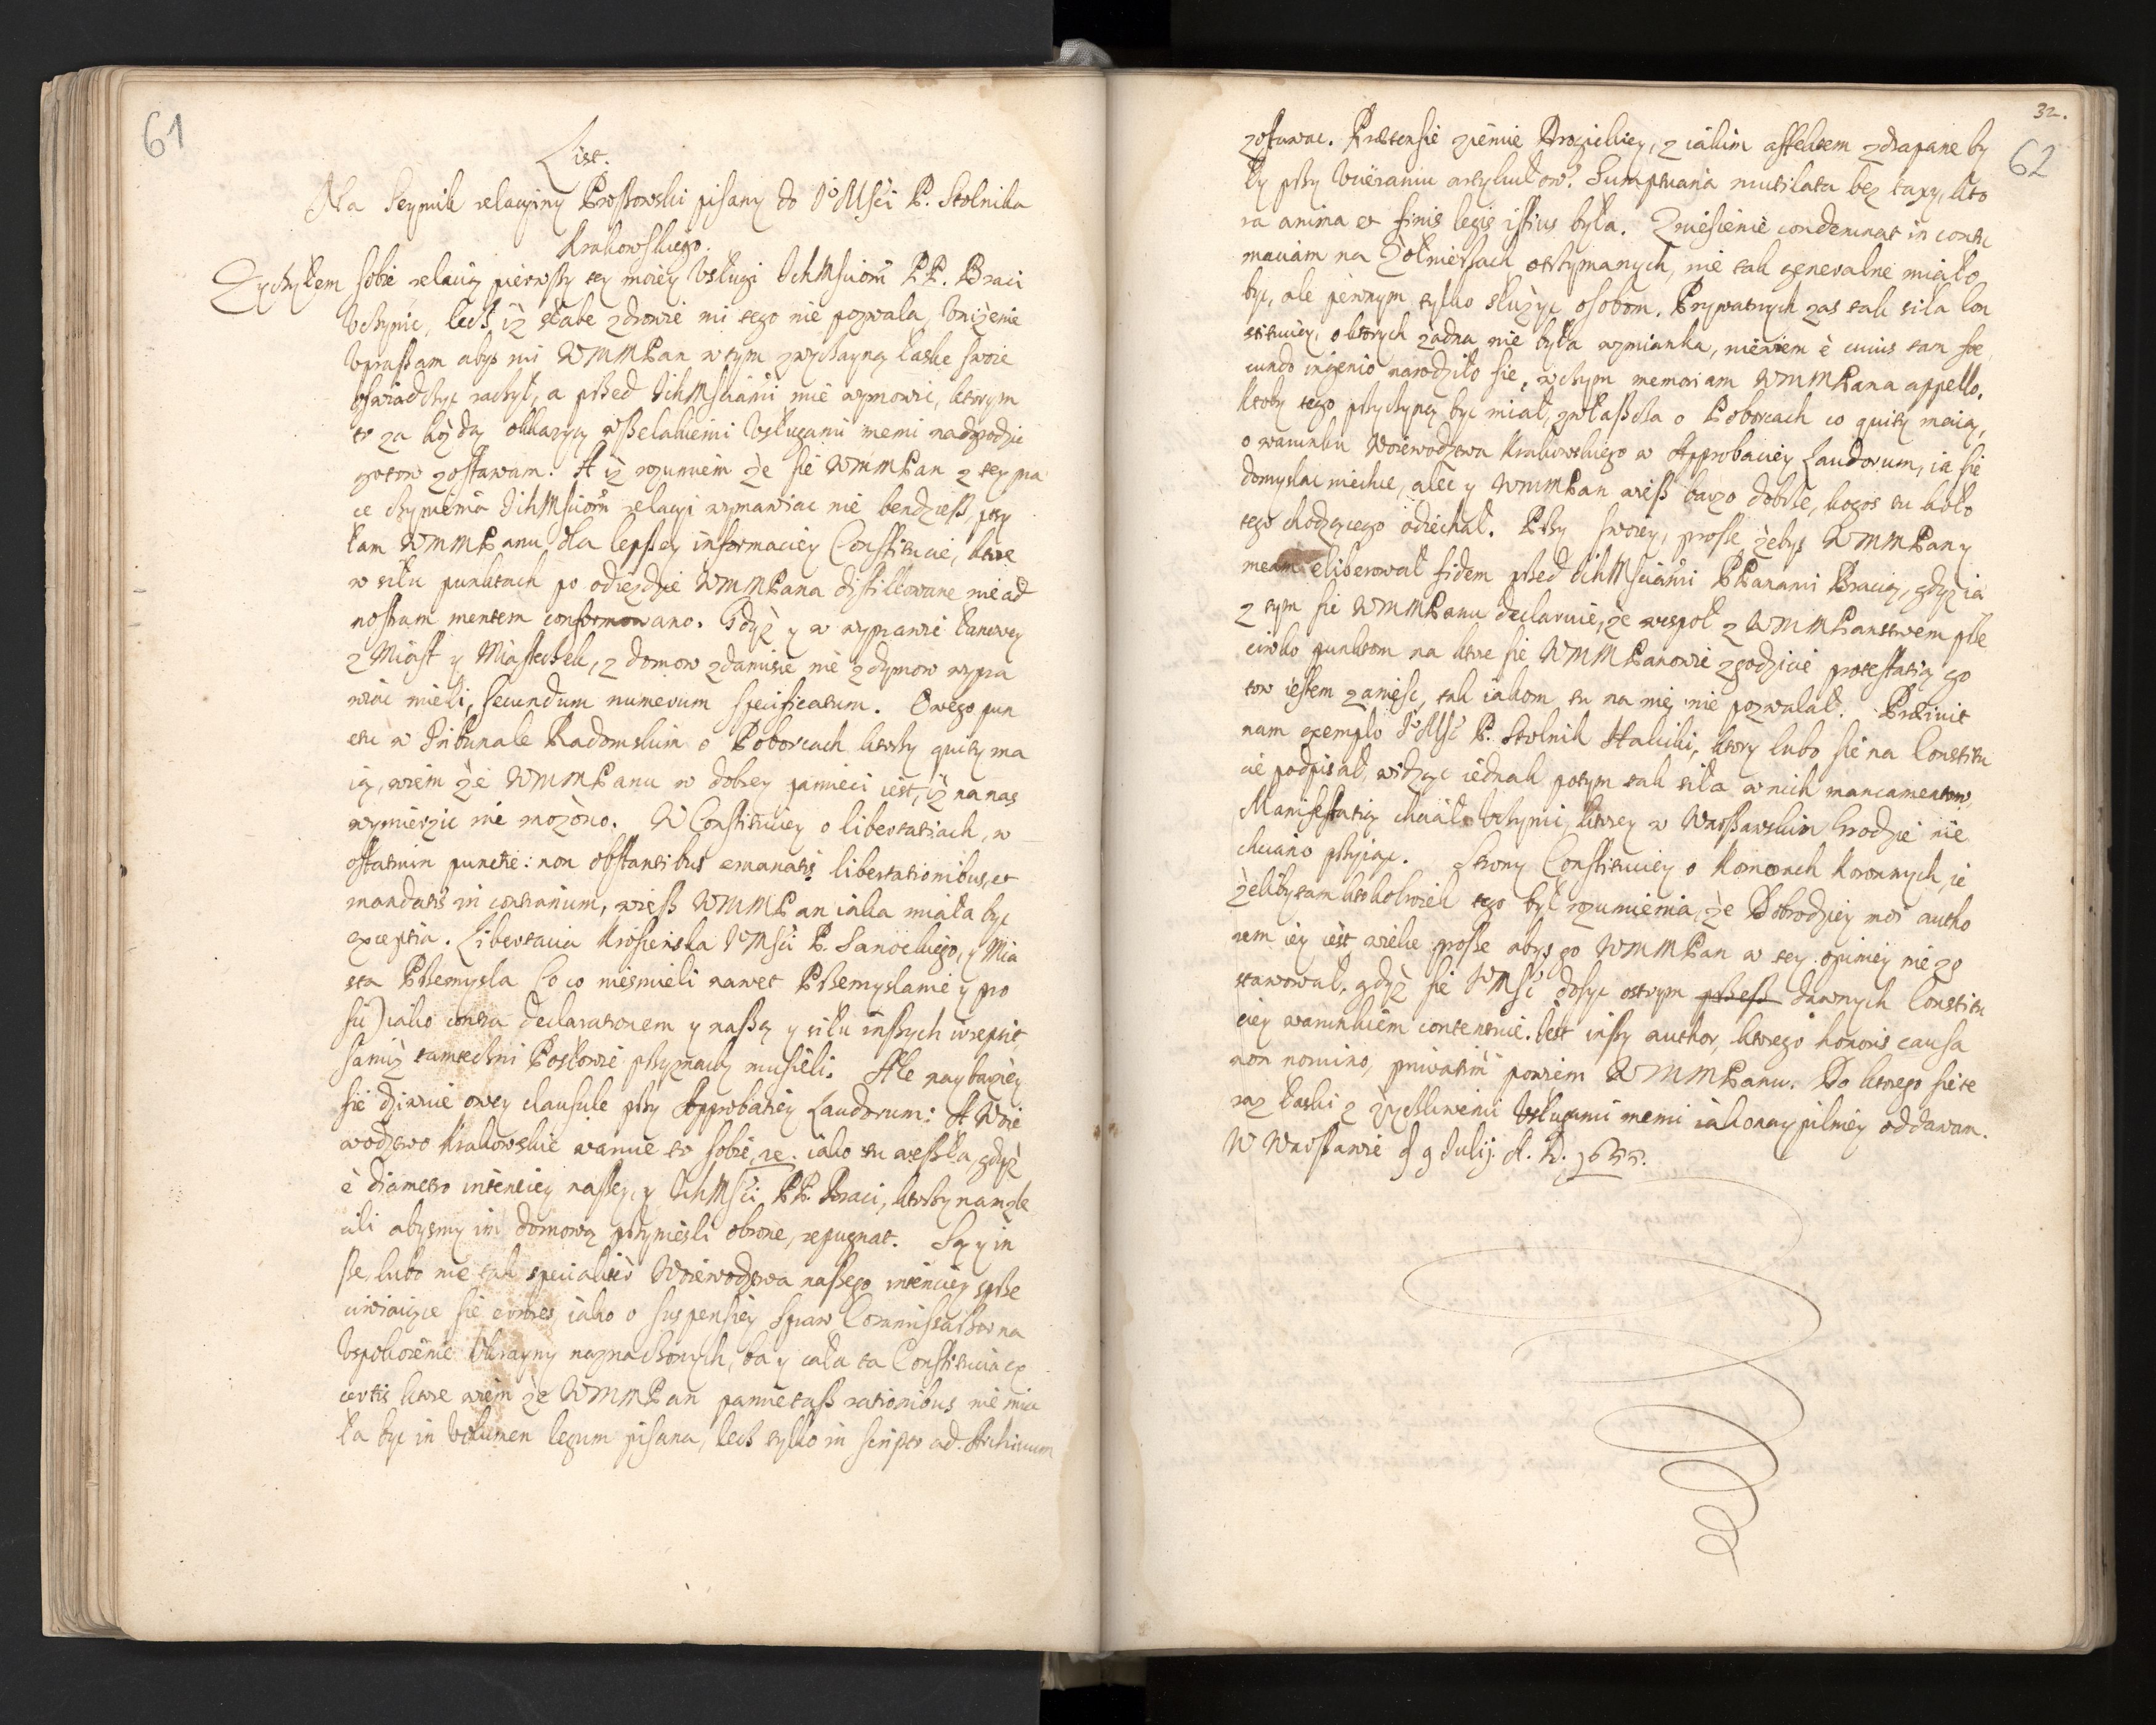 61
List.
Na Seymik relacyiny Proszowski pisany do Jo Msci P. Stolnika
Krakowskiego.
Zyczyłem sobie relacią pierwszy tey moiey Vsługi Ich Msciom P.P. Braci
Vczynic, lecz iz słabe zdrowie mi tego nie pozwala, Vnizenie
Vpraszam abys mi WMMPan w tym zwyczayną łaske swoie
oswiadczyc raczył, a przed Ich Msciami mie wymowic, ktorym
to za kozdą okkazyą wszelakiemi Vsługami memi nadgrodzic
gotow zostawam. A iz rozumiem ze sie WMMPan z tey pra
ce czynienia Ich Msciom relacyi wymawiac nie bendziesz, posy
łam WMMPanu dla lepszey informaciey Constitucie, ktore
w siłu punktach po odiezdzie WMMPana distillowane nie ad
nostram mentem conformowano. Gdyz y w wyprawie łanowey
z Miast y Miasteczek, z domow zdamisie nie z dymow wypra
wiac mieli, secundum numerum specificatum. Owego pun
ctu w Tribunale Radomskim o Poborcach ktorzy quity ma
ią, wiem ze WMMPanu w dobrey pamieci iest, iz na nas
wymierzic nie mozono. W Constituciey o libertatiach, w
ostatnim punctie: non obstantibus emanatis libertationibus, et
mandatis in contrarium, wiesz WMMPan iaka miała byc
exceptia. Libertacia Krosienska Jo Msci P. Sanockiego, y Mia
sta Przemysla (o co niesmieli nawet Przemyslanie y pro
sic) iako contra declarationem y naszą y siłu inszych irrepsit
samiz tamteczni Posłowie przyznacby musieli. Ale naybarziey
sie dziwuie owey clausule przy Approbatiey Laudorum: A Woie
wodztwo Krakowskie waruie to sobie, re. iako tu weszła, gdyz
è diametro intenciey naszey, y Ich Msci PP. Braci, ktorzy nam zle
cili abysmy im domową przyniesli obrone, repugnat. Są y in
sze, lubo nie tak specialiter Woiewodztwa naszego intenciey sprze
ciwiaiące sie errores, iako o suspensiey spraw Commissarzow na
Vspokoienie Vkrainy naznaczonych, ba y cała ta Constitucia ex
certis ktore wiem ze WMMPan pamietasz rationibus nie mia
ła byc in Volumen legum pisana, lecz tylko in scripto ad Archivum
32.
62
zostawac. Praetensie ziemie Drogickiey, z iakim affektem zdrapane by
ły przy Vcieraniu artykułow? Sumptuaria mutilata bez taxy, kto
ra anima et finis legis istius była. Zniesienie condemnat in contu
maciam na Zołnierzach otrzymanych, nie tak generalne miało
byc, ale pewnym tylko słuzyc osobom. Prywatnych zas tak siła con
stituciey, o ktorych zadna nie była wzmianka, niewiem è cuius tam foe
cundo ingenio narodziło sie, w czym memoriam WMMPana appello.
Ktoby tego przyczyną byc miał, zwłaszcza o Poborcach co quity maią,
o warunku Woiewodztwa Krakowskiego w Approbaciey Laudorum, ia sie
domyslac niechce, alec y WMMPan wiesz barzo dobrze, kogos tu koło
tego chodzącego odiechał. Przy swoiey, prosze zebys WMMPan y
meam eliberował fidem przed Ich Msciami PPanami Bracią, gdyz ia
z tym sie WMMPanu declaruie, ze wespoł z WMMPanstwem prze
ciwko punktom na ktore sie WMMPanowie zgodzicie protestatią go
tow iestem zaniesc, tak iakom tu na nię nie pozwalał. Praeivit
nam exemplo Jo Msc P. Stolnik Halicki, ktory lubo sie na Constitu
cie podpisał, widząc iednak potym tak siła w nich mancamentow
Manifestatią chciał Vczynic, ktorey w Warszawskim Grodzie nie
chciano przyiąc. Strony Constituciey o Komorach Koronnych, ie
zeliby tam ktokolwiek tego był rozumienia, ze Dobrodziey moi autho
rem iey iest, wielce prosze abys go WMMPan w tey opiniey nie zo
stawował, gdyz sie Jo Msc dosyc ostrym przesz dawnych Constitu
ciey warunkiem contentuie. Iest inszy author, ktorego honoris causa
non nomino, privatim powiem WMMPanu. Do ktorego sie te
raz łaski z zyczliwemi Vsługami memi iako naypilniey oddawam.
W Warszawie d 9 Julij. A. D. 1655.